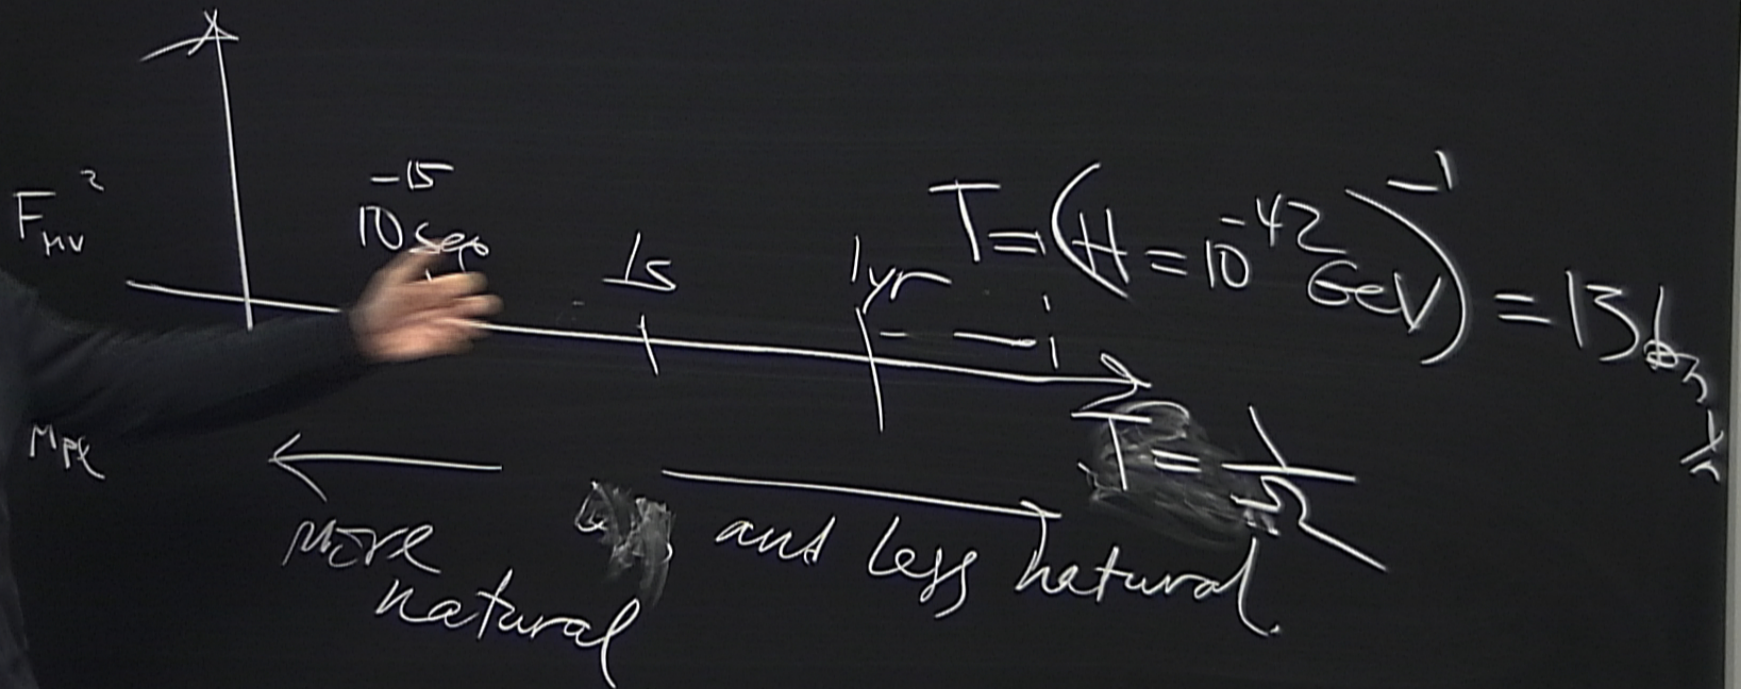 F_{μν}^2
10^{-15} sec
1s
1yr
T = (H = 10^{-42} GeV)^{-1} = 13 bn
M_{Pl}
T = 1/Ω
more natural
and less natural.